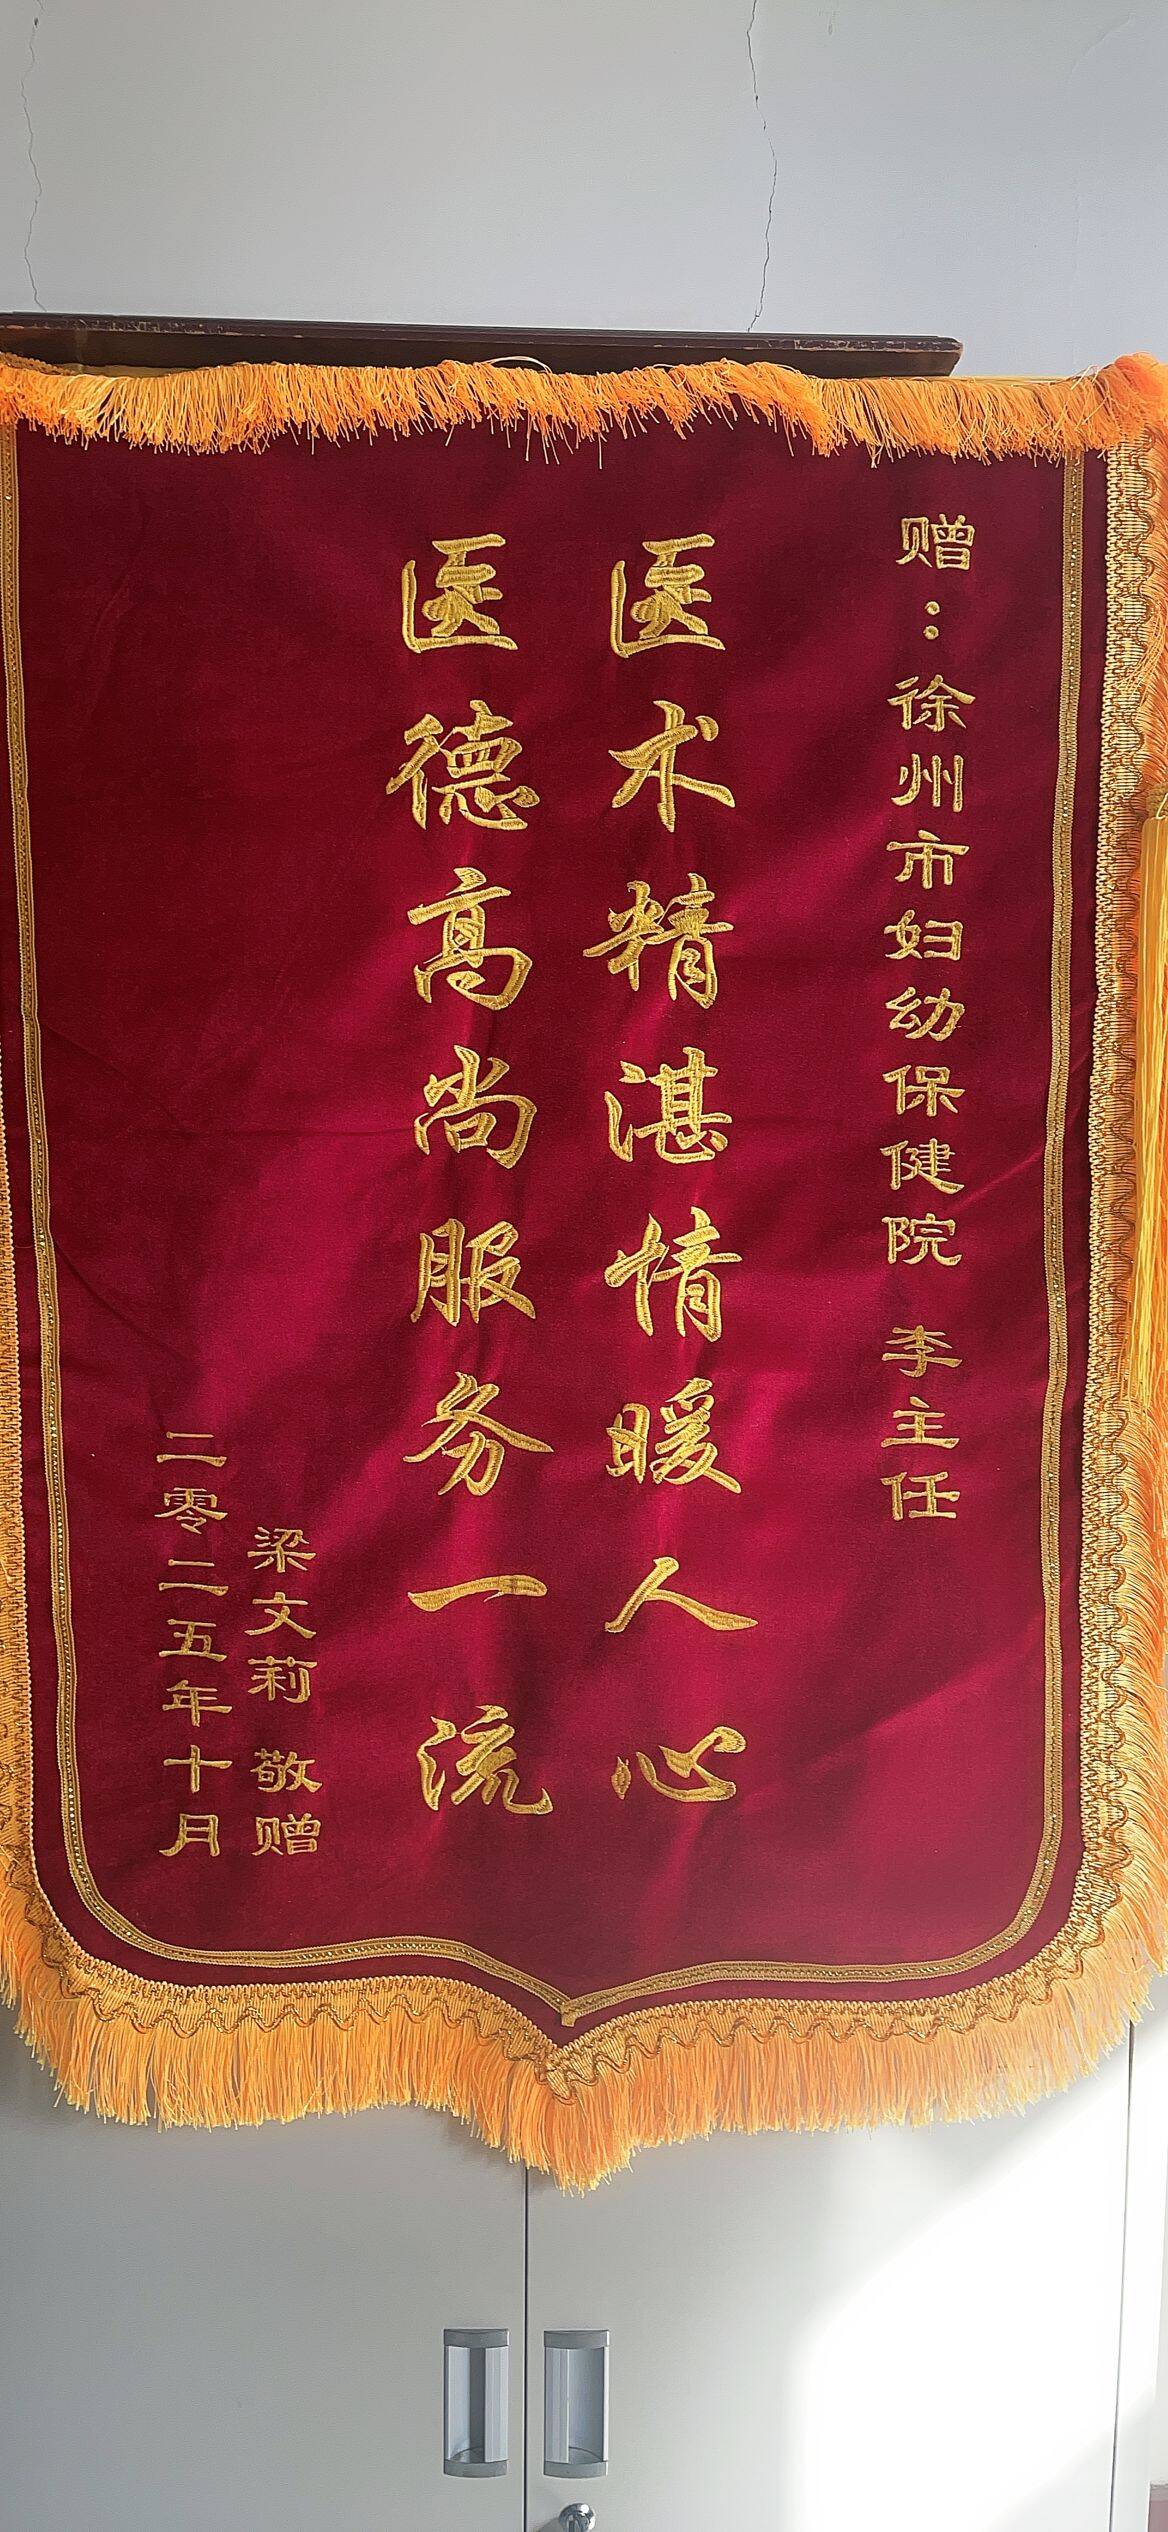 赠：徐州市妇幼保健院 李主任
医术精湛情暖人心
医德高尚服务一流
梁文莉 敬赠
二零二五年十月